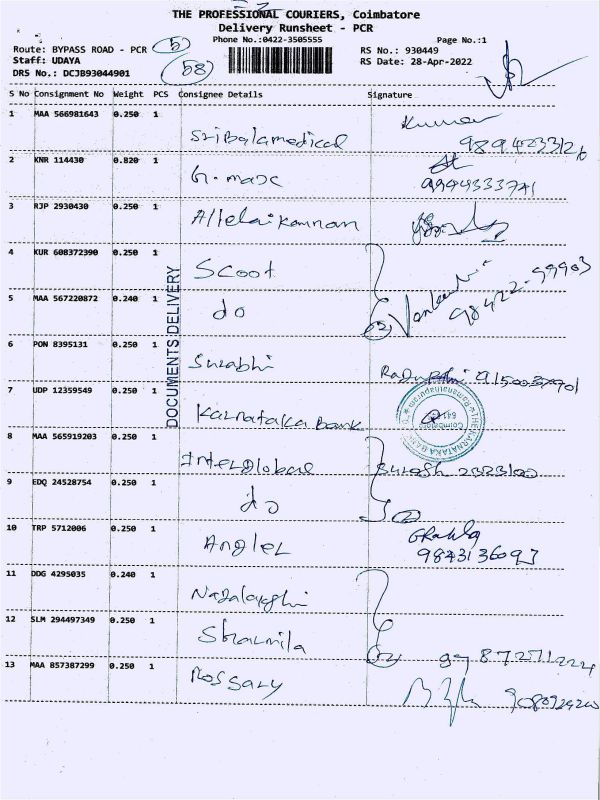 THE PROFESSIONAL COURIERS, Coimbatore
Delivery Runsheet - PCR
Phone No.:0422-3505555
Page No.:1
Route: BYPASS ROAD - PCR
5
RS No.: 930449
Staff: UDAYA
58
RS Date: 28-Apr-2022
DRS No.: DCJB93044901
S No Consignment No Weight PCS Consignee Details Signature
1 MAA 566981643 0.250 1 Sri Balamedical Kumar
2 KNR 114430 0.820 1 G. max
9994333741
3 RJP 2930430 0.250 1
4 KUR 608372390 0.250 1 Scoot
98422-99903
5 MAA 567220872 0.240 1 do
(2)
DOCUMENTS DELIVERY
6 PON 8395131 0.250 1 Surabhi
7 UDP 12359549 0.250 1 Karnataka Bank
8 MAA 565919203 0.250 1 Interglobal Suresh
9 EDQ 24528754 0.250 1 do
(2)
10 TRP 5712006 0.250 1 Angler
11 DDG 4295035 0.240 1
12 SLM 294497349 0.250 1 Sharmila
(2)
13 MAA 857387299 0.250 1 Rossary